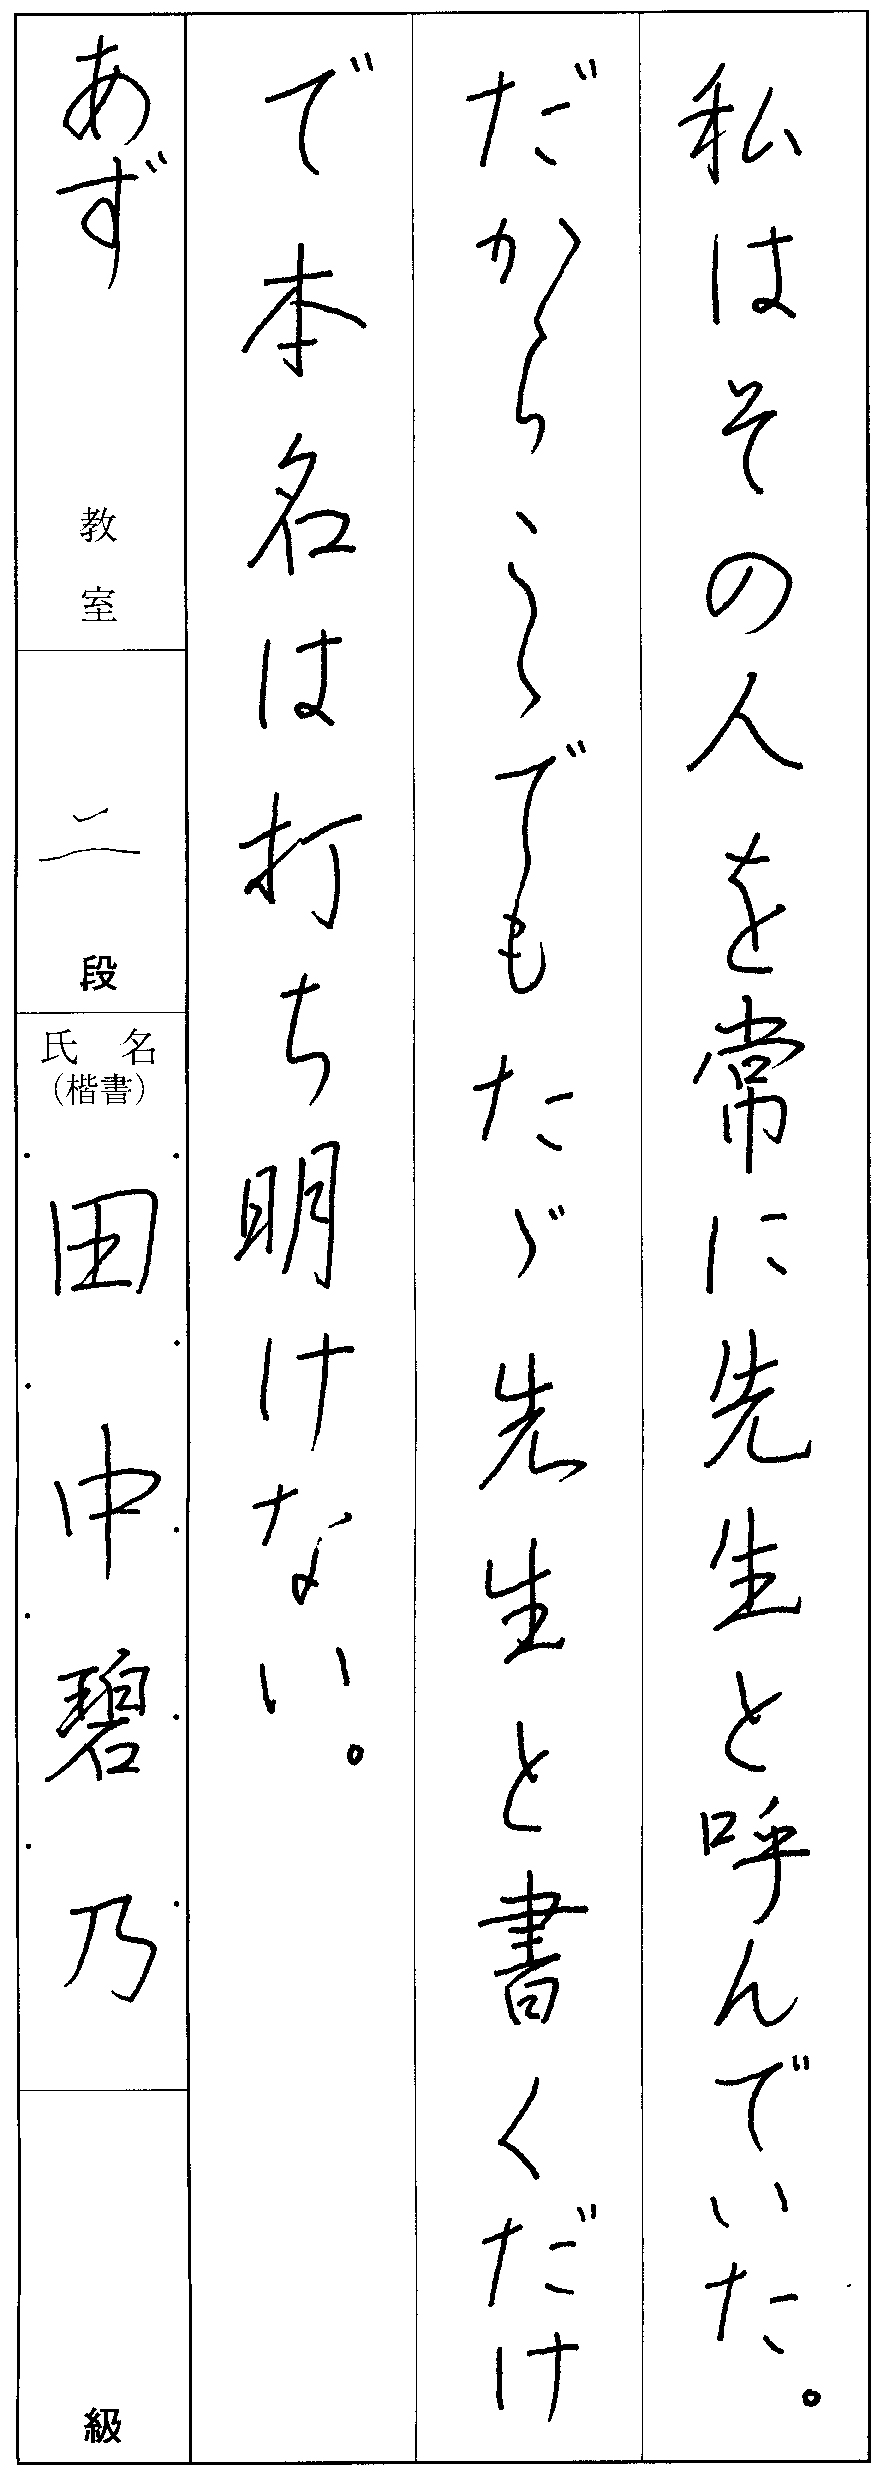 私はその人を常に先生と呼んでいた。
だからこゝでもたゞ先生と書くだけ
で本名は打ち明けない。
あず 教室
二 段
氏名
(楷書)
田中碧乃
級